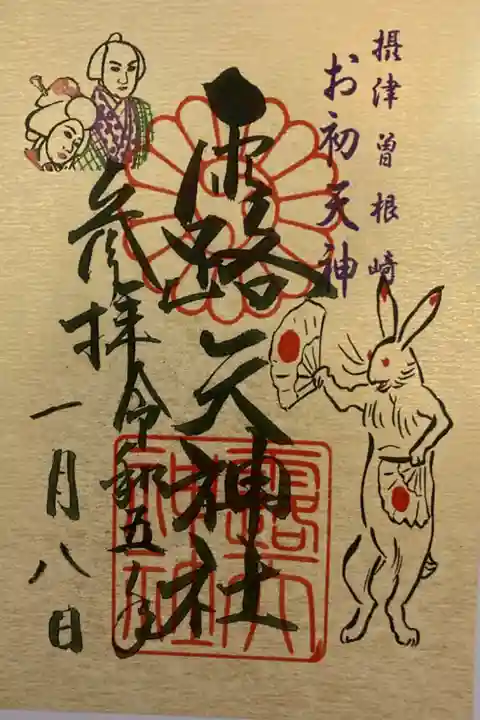 摂津曽根崎
お初天神
露天神社
参拝令和五年
一月八日
露天
神社